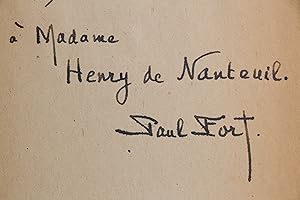 à Madame
Henry de Nanteuil.
Paul Fort.